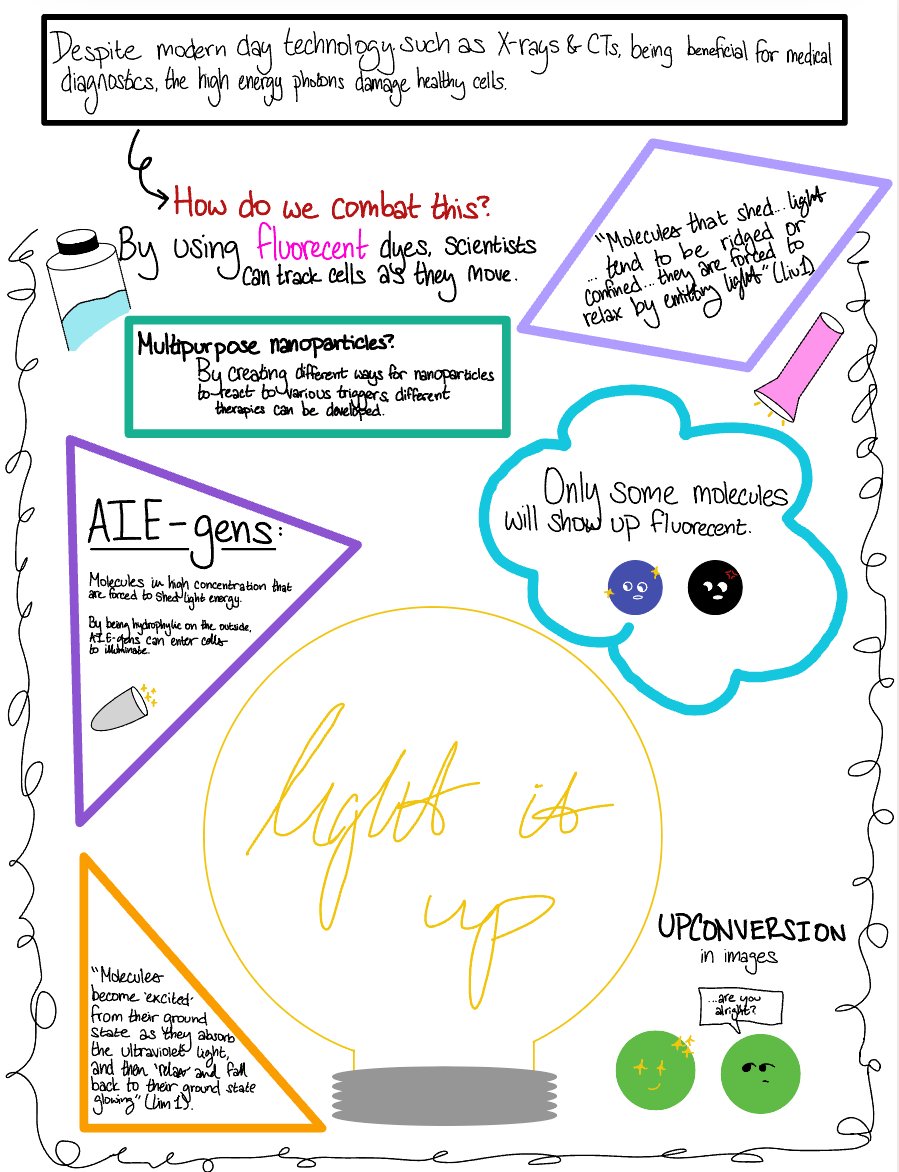 Despite modern day technology such as X-rays & CTs, being beneficial for medical
diagnostics, the high energy photons damage healthy cells.
How do we combat this?
By using fluorecent dyes, scientists
can track cells as they move.
"Molecules that shed... light
... tend to be ridged or
confined... they are forced to
relax by emitting light" (Liu 1)
Multipurpose nanoparticles?
By creating different ways for nanoparticles
to react to various triggers, different
therapies can be developed.
AIE-gens:
Molecules in high concentration that
are forced to shed light energy.
By being hydrophylic on the outside,
AIE-gens can enter cells
to illuminate.
Only some molecules
will show up fluorecent.
light it
up
"Molecules
become 'excited'
from their ground
state as they absorb
the ultraviolet light,
and then 'relax' and fall
back to their ground state
glowing" (Lim 1).
UPCONVERSION
in images
...are you
alright?